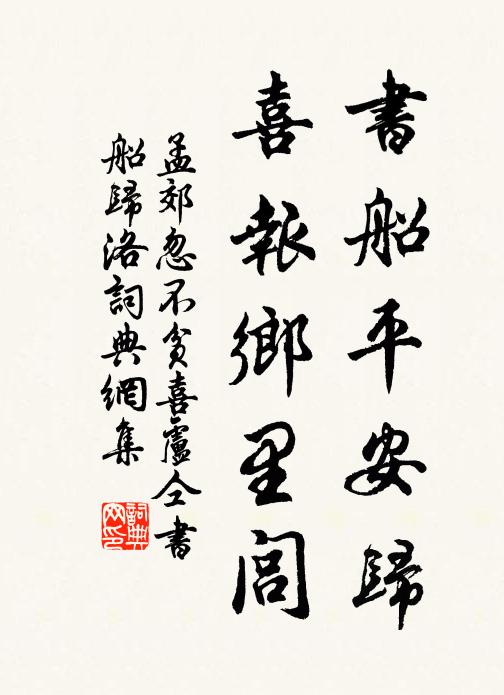 書船平安歸
喜報鄉里閭
孟郊忽不貧喜盧仝書
船歸洛詞典網集
詞典
网印